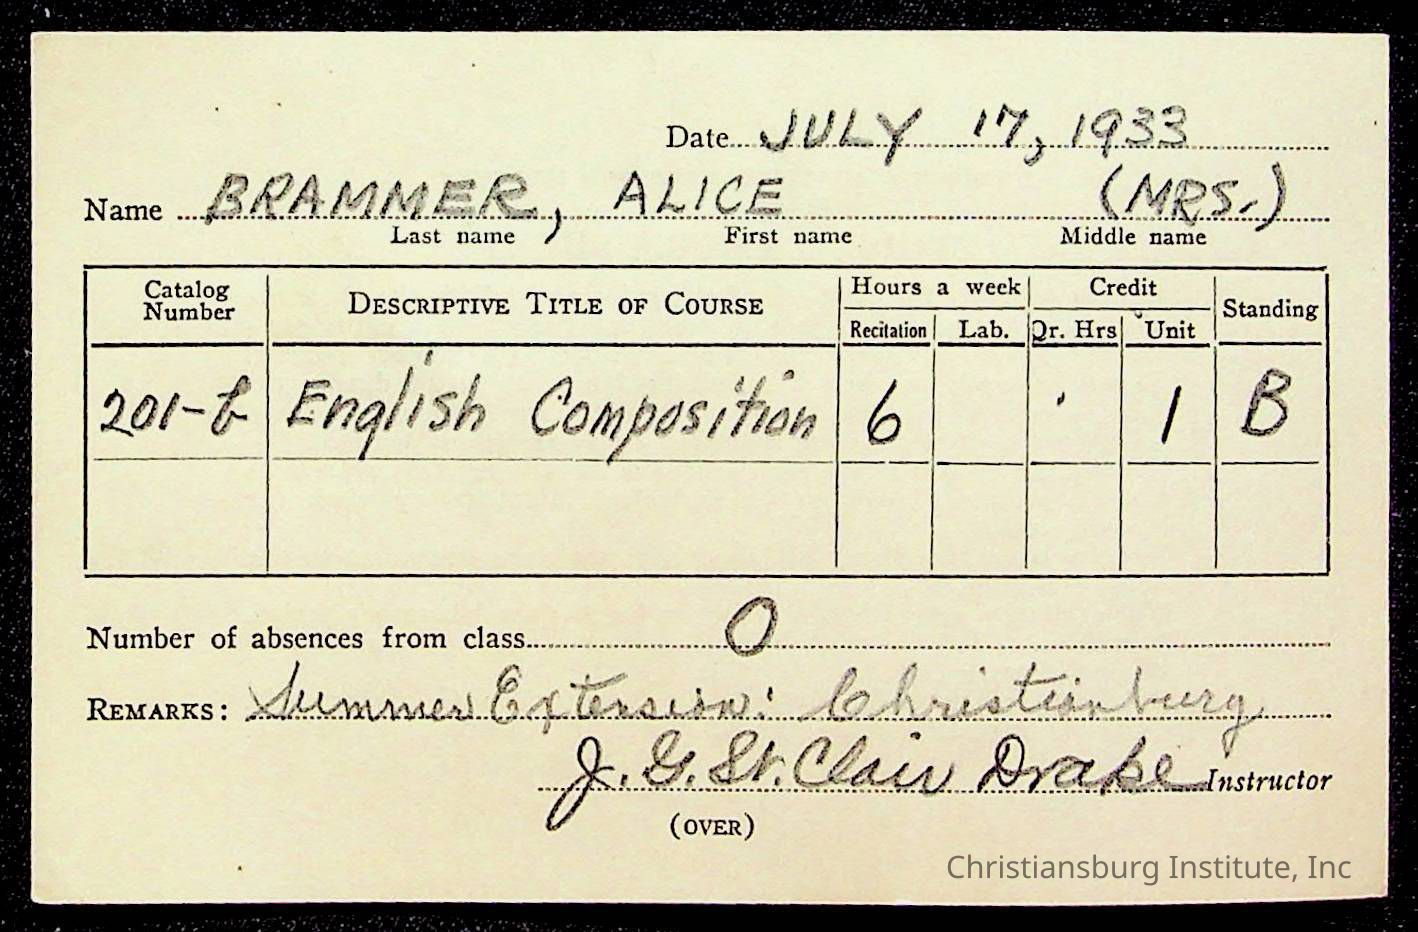 Date JULY 17, 1933
Name BRAMMER, ALICE (MRS.)
Last name First name Middle name
Catalog Number DESCRIPTIVE TITLE OF COURSE Hours a week Credit Standing
Recitation Lab. Qr. Hrs Unit
201-b English Composition 6 1 B
Number of absences from class 0
REMARKS: Summer Extension: Christianburg
J. G. St. Clair Drake Instructor
(OVER)
Christiansburg Institute, Inc